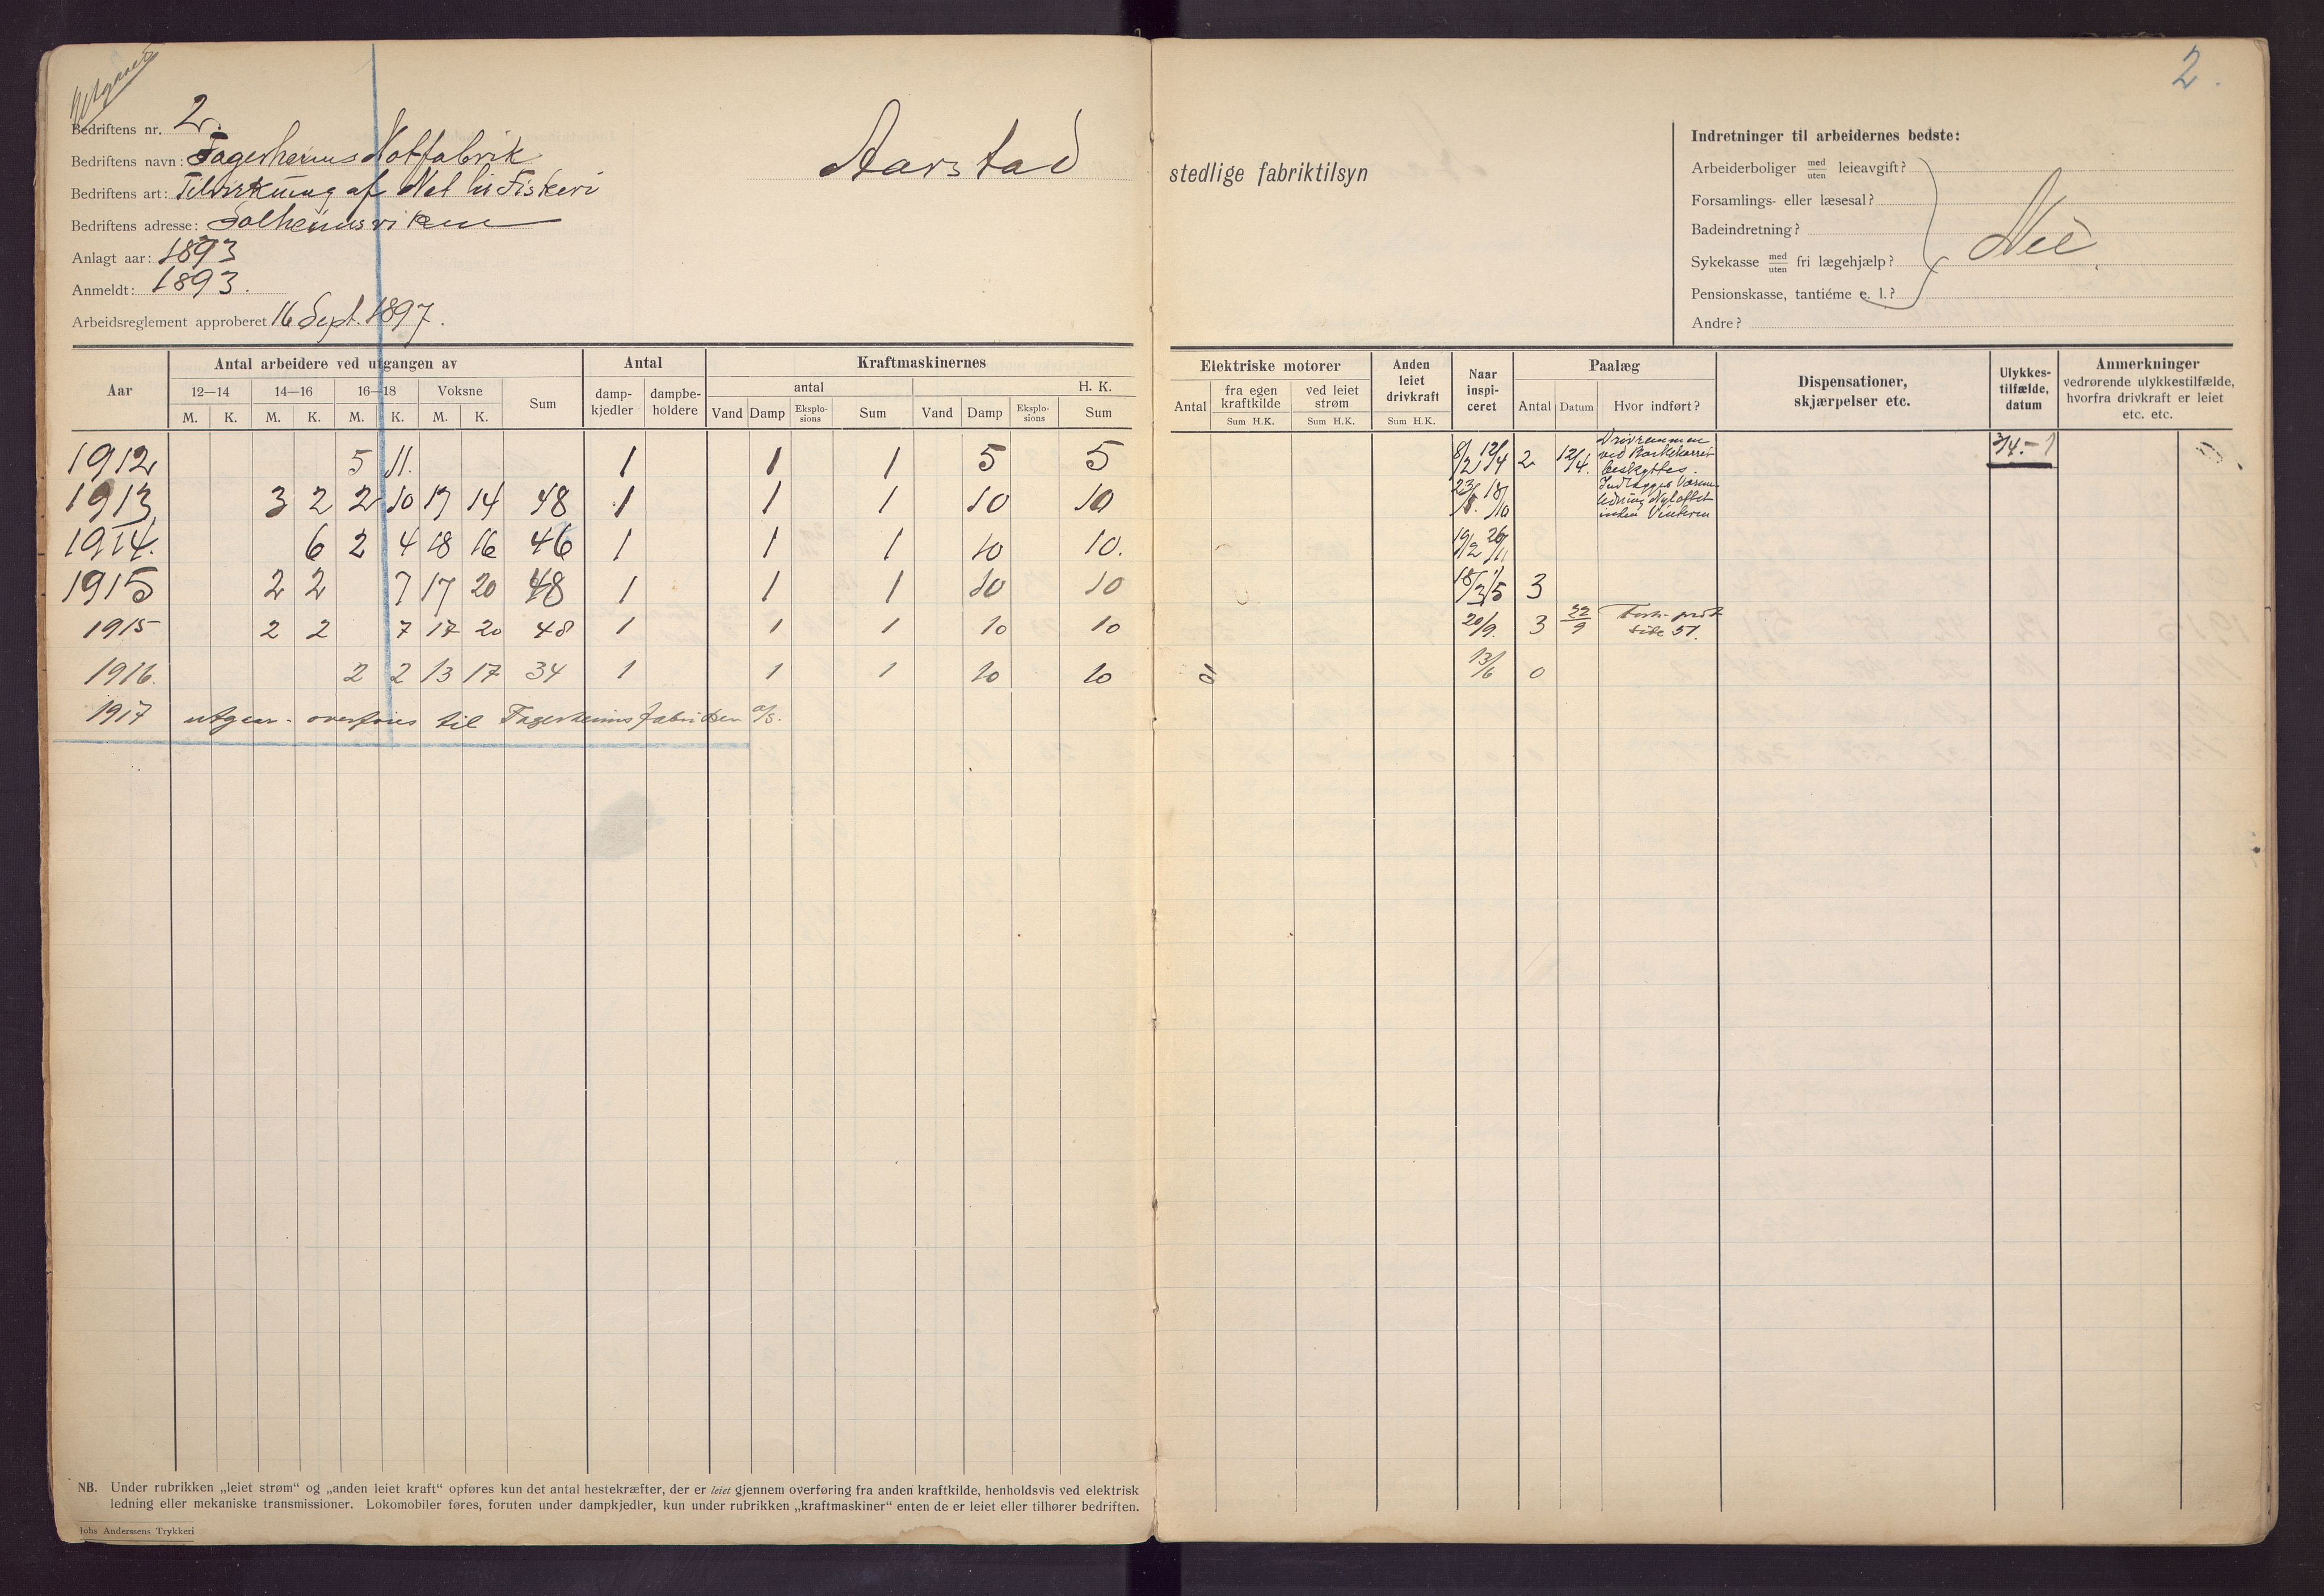 Utgaaet
2.
Bedriftens nr. 2.
Bedriftens navn: Fagerheims Notfabrik
Bedriftens art: Tilvirkning af Net til Fiskeri
Bedriftens adresse: Solheimsviken
Anlagt aar: 1893
Anmeldt: 1893.
Arbeidsreglement approberet 16 Sept. 1897.
Aarstad stedlige fabriktilsyn
Indretninger til arbeidernes bedste:
Arbeiderboliger med uten leieavgift?
Forsamlings- eller læsesal?
Badeindretning?
Sykekasse med uten fri lægehjælp?
Pensionskasse, tantiéme e. l.?
Andre?
Nei.
Aar
Antal arbeidere ved utgangen av
12—14 14—16 16—18 Voksne Sum
M. K. M. K. M. K. M. K.
Antal
damp-kjedler dampbe-holdere
Kraftmaskinernes
antal H. K.
Vand Damp Eksplo-sions Sum Vand Damp Eksplo-sions Sum
Elektriske motorer
Antal fra egen kraftkilde ved leiet strøm
Sum H.K. Sum H.K.
Anden leiet drivkraft
Sum H.K.
Naar inspi-ceret
Paalæg
Antal Datum Hvor indført?
Dispensationer, skjærpelser etc.
Ulykkes-tilfælde, datum
Anmerkninger
vedrørende ulykkestilfælde,
hvorfra drivkraft er leiet
etc. etc.
1912 5 11. 1 1 1 5 5 8/2 12/4 2 12/4. Drivremmen ved Barkekarret beskyttes. 3/4.-1
1913 3 2 2 10 17 14 48 1 1 1 10 10 23/8. 18/10 Indlægges Varmeledning Nyloftet inden Vinteren
1914. 6 2 4 18 16 46 1 1 1 10 10. 19/2 26/11
1915 2 2 7 17 20 48 1 1 1 10 10 18/3 1/5 3
1915 2 2 7 17 20 48 1 1 1 10 10 20/9. 3 22/9 Forh. prot side 51.
1916. 2 2 13 17 34 1 1 1 10 10 13/6 0
1917 utgaar - overføres til Fagerheims fabrikker a/s.
NB. Under rubrikken „leiet strøm“ og „anden leiet kraft“ opføres kun det antal hestekræfter, der er leiet gjennem overføring fra anden kraftkilde, henholdsvis ved elektrisk
ledning eller mekaniske transmissioner. Lokomobiler føres, foruten under dampkjedler, kun under rubrikken „kraftmaskiner“ enten de er leiet eller tilhører bedriften.
Johs Anderssens Trykkeri